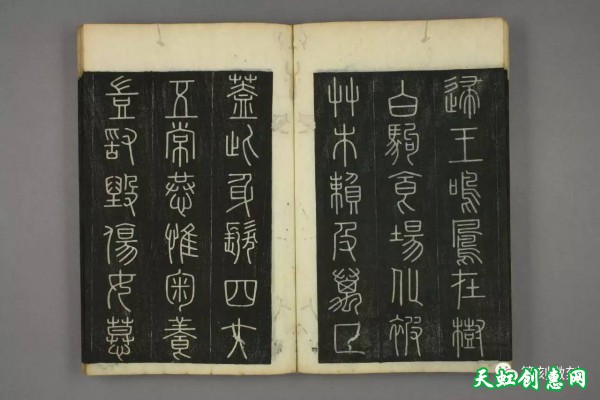 歸王鳴鳳在樹
白駒食場化被
艸木賴及萬方
蓋此身髮四大
五常恭惟鞠養
豈敢毀傷女慕
天虹创惠网